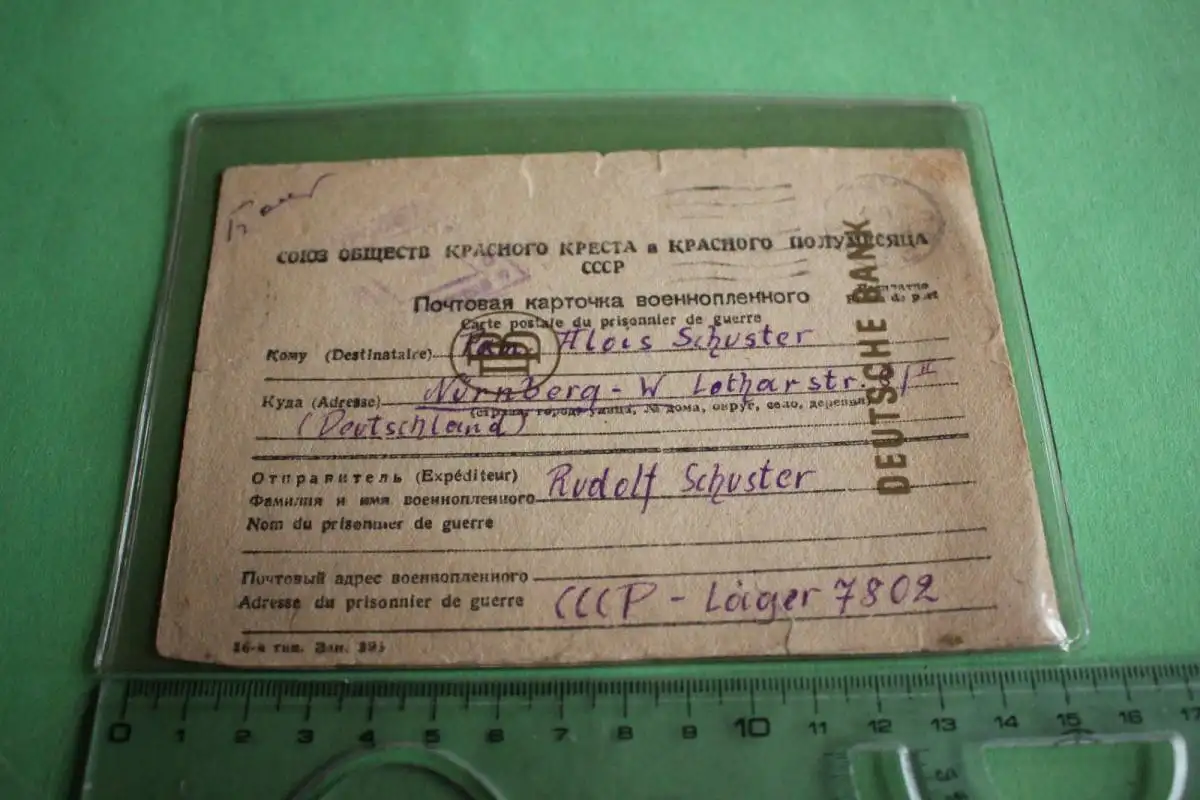 СОЮЗ ОБЩЕСТВ КРАСНОГО КРЕСТА и КРАСНОГО ПОЛУМЕСЯЦА
СССР
Почтовая карточка военнопленного
Carte postale du prisonnier de guerre
Кому (Destinataire) Fam. Alois Schuster
Куда (Adresse) Nürnberg - W Lotharstr.
(страна, город, улица, № дома, округ, село, деревня)
(Deutschland)
Отправитель (Expéditeur)
Фамилия и имя военнопленного Rudolf Schuster
Nom du prisonnier de guerre
Почтовый адрес военнопленного
Adresse du prisonnier de guerre CCCP - Lager 7802
16-я тип. Зак.
DEUTSCHE BANK
DB
0 1 2 3 4 5 6 7 8 9 10 11 12 13 14 15 16 17